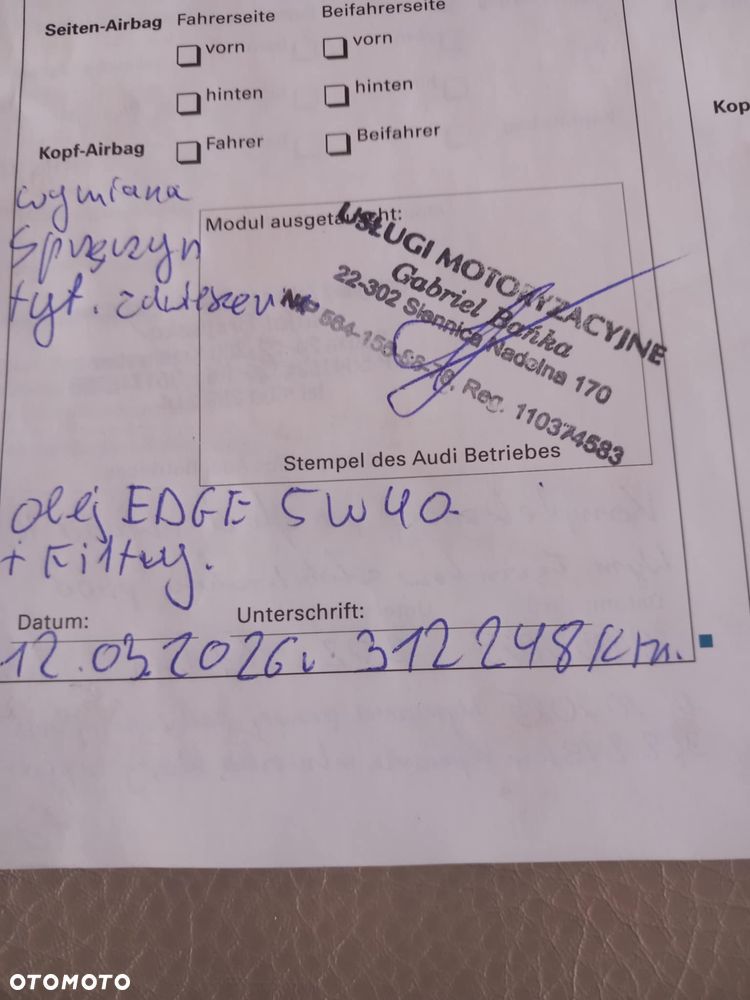 Seiten-Airbag Fahrerseite Beifahrerseite
vorn vorn
hinten hinten
Kopf-Airbag Fahrer Beifahrer
Kop
wymiana
Sprężyn
tył. zawieszeni
Modul ausgetauscht:
USŁUGI MOTORYZACYJNE
Gabriel Bańka
22-302 Siennica Nadolna 170
NIP 564-158- Reg. 110374583
Stempel des Audi Betriebes
Olej EDGE 5W40
+ Filtry.
Datum: Unterschrift:
12.03.2026r 312248 Km.
OTOMOTO